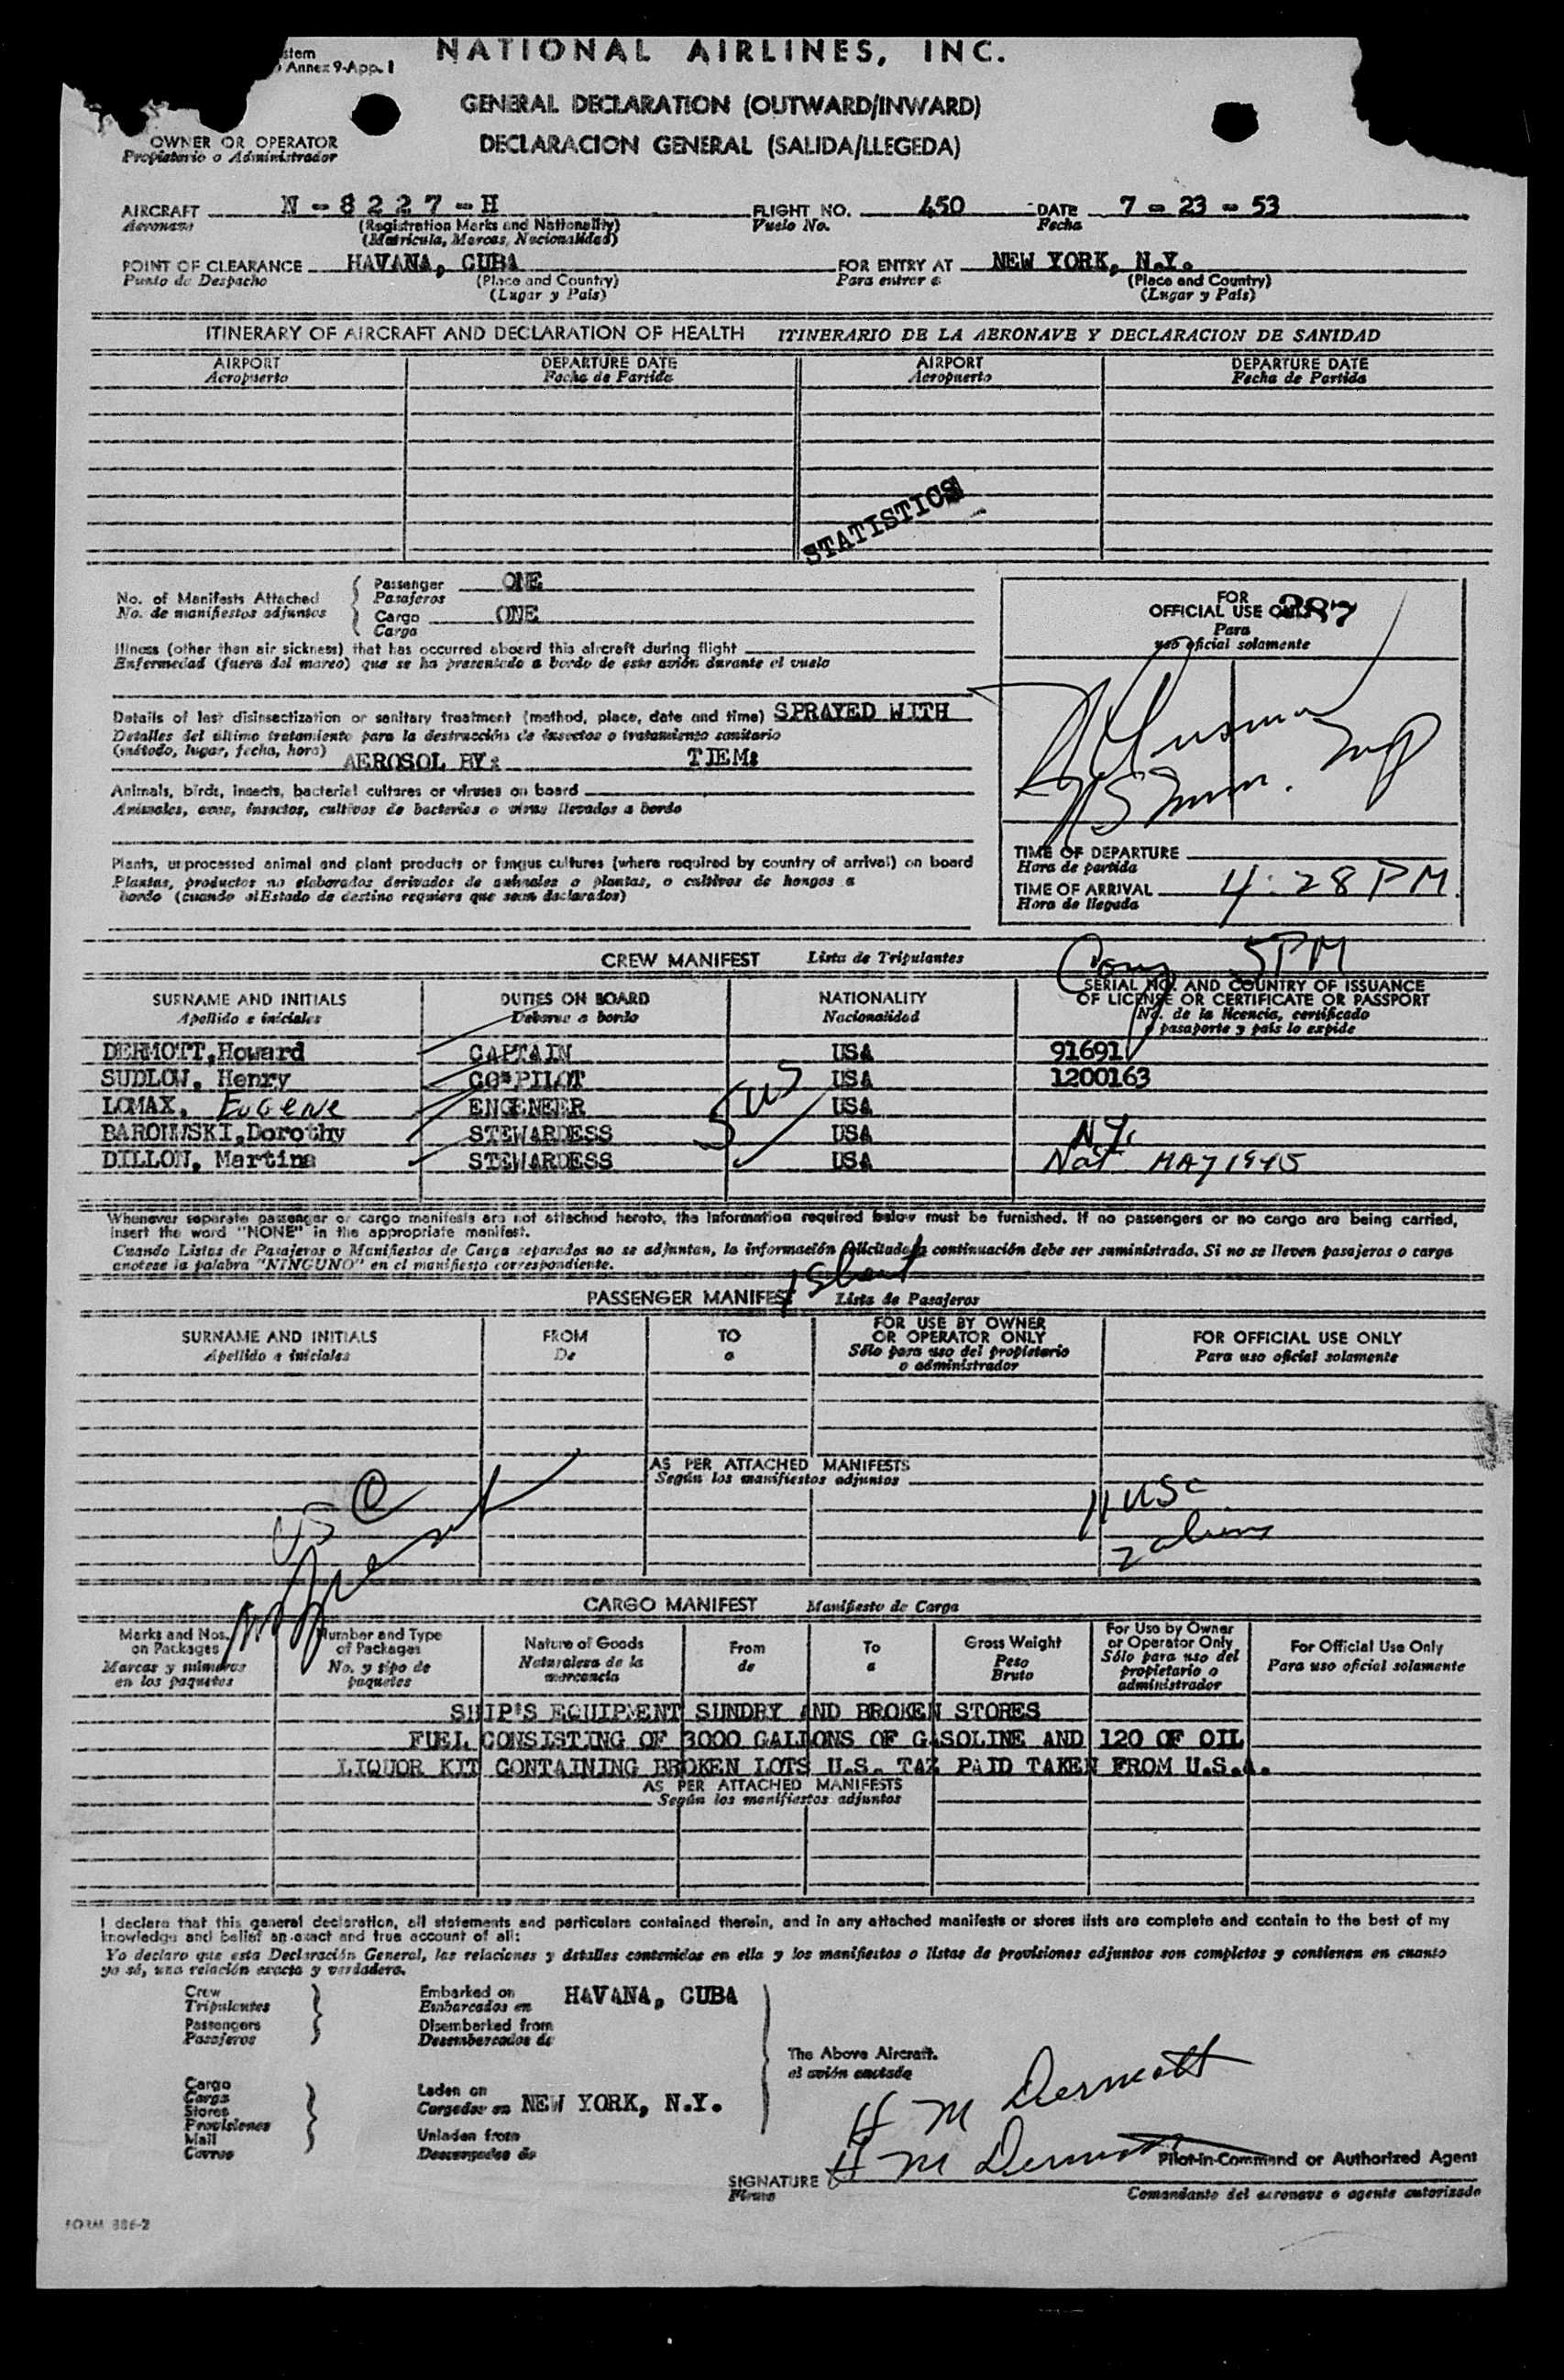 stem
Annex 9-App. 1
NATIONAL AIRLINES, INC.
GENERAL DECLARATION (OUTWARD/INWARD)
DECLARACION GENERAL (SALIDA/LLEGEDA)
OWNER OR OPERATOR
Propietario o Administrador
AIRCRAFT N-8227-H FLIGHT NO. 450 DATE 7-23-53
Aeronave (Registration Marks and Nationality) Vuelo No. Fecha
(Matrícula, Marcas, Nacionalidad)
POINT OF CLEARANCE HAVANA, CUBA FOR ENTRY AT NEW YORK, N.Y.
Punto de Despacho (Place and Country) Para entrar a (Place and Country)
(Lugar y País) (Lugar y País)
ITINERARY OF AIRCRAFT AND DECLARATION OF HEALTH ITINERARIO DE LA AERONAVE Y DECLARACION DE SANIDAD
AIRPORT DEPARTURE DATE AIRPORT DEPARTURE DATE
Aeropuerto Fecha de Partida Aeropuerto Fecha de Partida
STATISTICS
No. of Manifests Attached Passenger ONE
No. de manifiestos adjuntos Pasajeros
Cargo ONE
Carga
FOR
OFFICIAL USE ONLY 287
Para
uso oficial solamente
Illness (other than air sickness) that has occurred aboard this aircraft during flight
Enfermedad (fuera del mareo) que se ha presentado a bordo de este avión durante el vuelo
Details of last disinsectization or sanitary treatment (method, place, date and time) SPRAYED WITH
Detalles del último tratamiento para la destrucción de insectos o tratamiento sanitario
(método, lugar, fecha, hora) AEROSOL BY: TIEM:
Animals, birds, insects, bacterial cultures or viruses on board
Animales, aves, insectos, cultivos de bacterias o virus llevados a bordo
Plants, unprocessed animal and plant products or fungus cultures (where required by country of arrival) on board
Plantas, productos no elaborados derivados de animales o plantas, o cultivos de hongos a
bordo (cuando el Estado de destino requiera que sean declarados)
TIME OF DEPARTURE
Hora de partida
TIME OF ARRIVAL 4:28 PM
Hora de llegada
5PM
CREW MANIFEST Lista de Tripulantes
SURNAME AND INITIALS DUTIES ON BOARD NATIONALITY SERIAL NO. AND COUNTRY OF ISSUANCE
OF LICENSE OR CERTIFICATE OR PASSPORT
Apellido e iniciales Deberes a bordo Nacionalidad No. de la licencia, certificado
o pasaporte y país lo expide
DERMOTT, Howard CAPTAIN USA 91691
SUDLOW, Henry CO-PILOT USA 1200163
LOMAX, EUGENE ENGENEER USA
BAROIWSKI, Dorothy STEWARDESS USA N.Y.
DILLON, Martina STEWARDESS USA Nat MAY 1945
5 US
Whenever separate passenger or cargo manifests are not attached hereto, the information required below must be furnished. If no passengers or no cargo are being carried,
insert the word "NONE" in the appropriate manifest.
Cuando Listas de Pasajeros o Manifiestos de Carga separados no se adjuntan, la información solicitada a continuación debe ser suministrada. Si no se lleven pasajeros o carga
anotese la palabra "NINGUNO" en el manifiesto correspondiente.
1 Sheet
PASSENGER MANIFEST Lista de Pasajeros
SURNAME AND INITIALS FROM TO FOR USE BY OWNER
OR OPERATOR ONLY FOR OFFICIAL USE ONLY
Apellido e iniciales De a Sólo para uso del propietario
o administrador Para uso oficial solamente
AS PER ATTACHED MANIFESTS
Según los manifiestos adjuntos
11 USC
2 aliens
CARGO MANIFEST Manifiesto de Carga
Marks and Nos.
on Packages
Marcas y números
en los paquetes
Number and Type
of Packages
No. y tipo de
paquetes
Nature of Goods
Naturaleza de la
mercancía
From
de
To
a
Gross Weight
Peso
Bruto
For Use by Owner
or Operator Only
Sólo para uso del
propietario o
administrador
For Official Use Only
Para uso oficial solamente
SHIP'S EQUIPMENT SUNDRY AND BROKEN STORES
FUEL CONSISTING OF 3000 GALLONS OF GASOLINE AND 120 OF OIL
LIQUOR KIT CONTAINING BROKEN LOTS U.S. TAX PAID TAKEN FROM U.S.A.
AS PER ATTACHED MANIFESTS
Según los manifiestos adjuntos
I declare that this general declaration, all statements and particulars contained therein, and in any attached manifests or stores lists are complete and contain to the best of my
knowledge and belief an exact and true account of all:
Yo declaro que esta Declaración General, las relaciones y detalles contenidos en ella y los manifiestos o listas de provisiones adjuntos son completos y contienen en cuanto
yo sé, una relación exacta y verdadera.
Crew Embarked on HAVANA, CUBA
Tripulantes Embarcados en
Passengers Disembarked from
Pasajeros Desembarcados de
The Above Aircraft.
el avión anotado
Cargo
Carga
Stores
Provisiones
Mail
Correo
Laden on
Cargados en NEW YORK, N.Y.
Unladen from
Descargados de
H M Dermott
H M Dermott
Pilot-in-Command or Authorized Agent
SIGNATURE
Firma Comandante del aeronave o agente autorizado
FORM 886-2